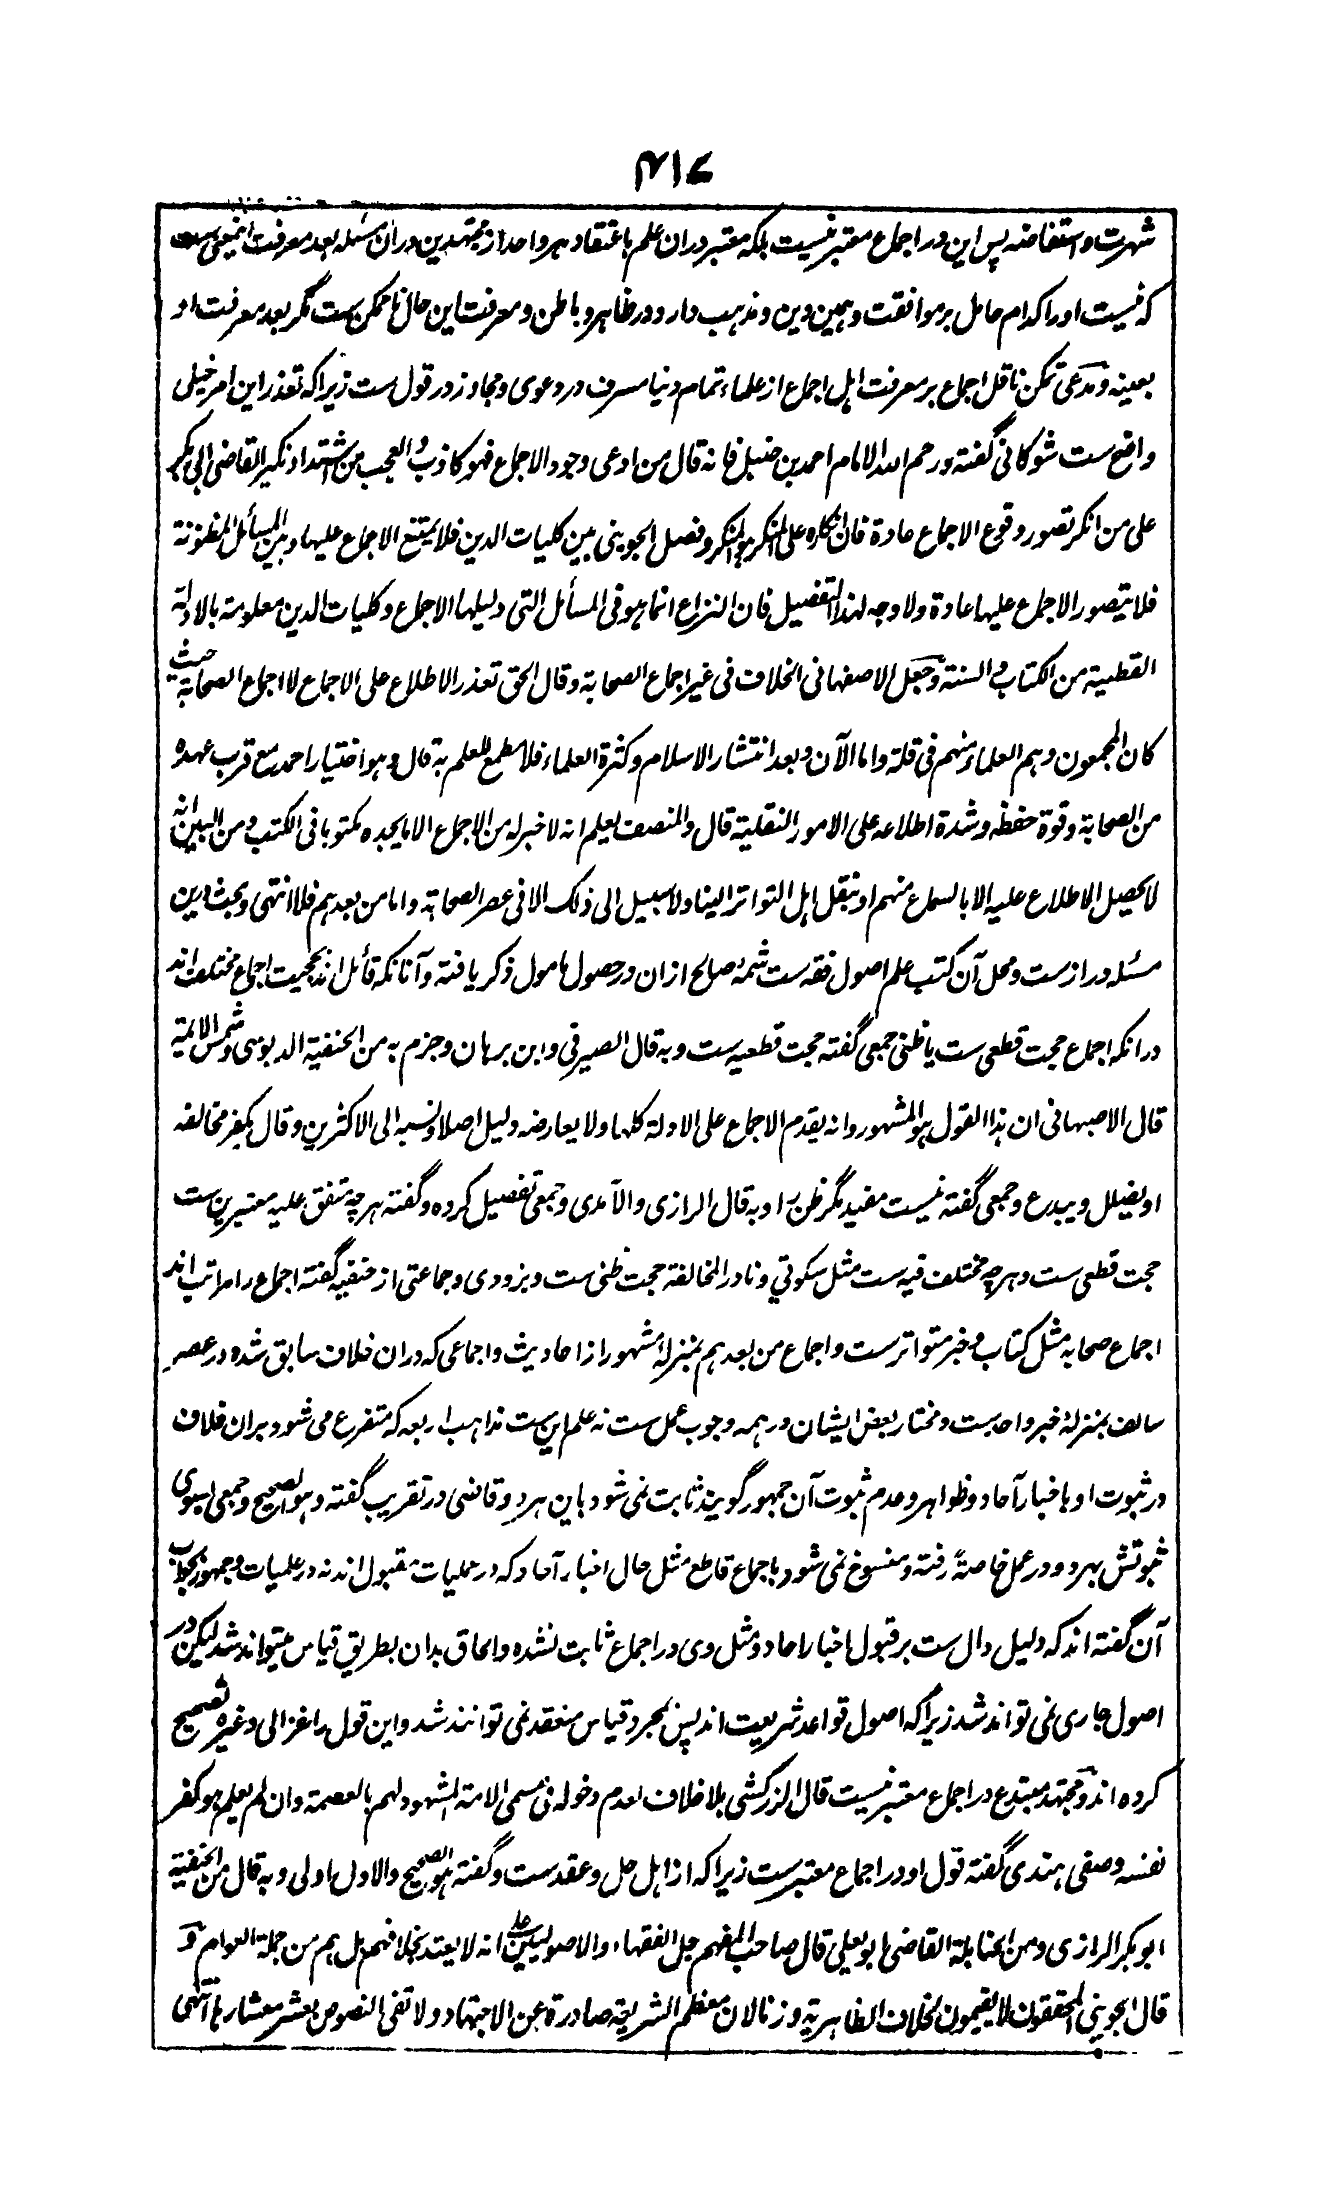 ۴۱۷
شهرت و استفاضه پس این در اجماع معتبر نیست بلکه معتبر دران علم باعتقاد هر واحد از مجتهدین دران مسئله بعد معرفت اینمعنی ست
که نیست او را کدام حامل بر موافقت و همین دین و مذهب دارد در ظاهر و باطن و معرفت این حال ناممکن ست مگر بعد معرفت او
بعینه و مدعی تمکن ناقل اجماع بر معرفت اهل اجماع از علماء تمام دنیا مسرف در دعوی و مجاوز در قول ست زیراکه تعذر این امر خیلی
واضح ست شوکانی گفته ورحم الله الامام احمد بن حنبل فانه قال من ادعی وجود الاجماع فهو کاذب والعجب من اشتداد نکیر القاضی ابی بکر
علی من انکر تصور وقوع الاجماع عادة فان انکاره علی المنکر هو المنکر وفصل الجوینی بین کلیات الدین فلا یمتنع الاجماع علیها وبین المسائل المظنونة
فلا یتصور الاجماع علیها عادة ولا وجه لهذا التفصیل فان النزاع انما هو فی المسائل التی دلیلها الاجماع وکلیات الدین معلومة بالادلة
القطعیة من الکتاب والسنة وجعل الاصفهانی الخلاف فی غیر اجماع الصحابة وقال الحق تعذر الاطلاع علی الاجماع لا اجماع الصحابة حیث
کان المجمعون وهم العلماء منهم فی قلة واما الآن وبعد انتشار الاسلام وکثرة العلماء فلا مطمع للعلم به قال وهو اختیار احمد مع قرب عهده
من الصحابة وقوة حفظه وشدة اطلاعه علی الامور النقلیة قال والمنصف یعلم انه لا خبر له من الاجماع الا ما یجده مکتوبا فی الکتب ومن البین انه
لا یحصل الاطلاع علیه الا بالسماع منهم او بنقل اهل التواتر الینا ولا سبیل الی ذلک الا فی عصر الصحابة واما من بعدهم فلا انتهی و بحث درین
مسئله دراز ست و محل آن کتب علم اصول فقه ست شمهٔ صالح ازان در حصول مامول ذکر یافته و آنانکه قائل اند بحجیت اجماع مختلف اند
در انکه اجماع حجت قطعی ست یا ظنی جمعی گفته حجت قطعیه ست وبه قال الصیرفی وابن برهان وجزم به من الحنفیة الدبوسی وشمس الائمة
قال الاصبهانی ان هذا القول هو المشهور وانه یقدم الاجماع علی الادلة کلها ولا یعارضه دلیل اصلا ونسبه الی الاکثرین وقال یکفر مخالفه
او یضلل ویبدع و جمعی گفته نیست مفید مگر ظن را وبه قال الرازی والآمدی و جمعی تفصیل کرده و گفته هرچه متفق علیه معتبرین ست
حجت قطعی ست و هرچه مختلف فیه ست مثل سکوتی و نادر المخالفة حجت ظنی ست و بزودی و جماعتی از حنفیه گفته اجماع را مراتب اند
اجماع صحابه مثل کتاب و خبر متواتر ست و اجماع من بعدهم بمنزلهٔ مشهور از احادیث و اجماعی که دران خلاف سابق شده در عصر
سالف بمنزلهٔ خبر واحد ست و مختار بعض ایشان در همه وجوب عمل ست نه علم این ست مذاهب اربعه که متفرع می شود بران خلاف
در ثبوت او باخبار آحاد و ظواهر و عدم ثبوت آن جمهور گویند ثابت نمی شود باین هر دو و قاضی در تقریب گفته وهو الصحیح و جمعی بسوی
ثبوتش بهر دو در عمل خاصةً رفته و منسوخ نمی شود باجماع قاطع مثل حال اخبار آحاد که در عملیات مقبول اند نه در علمیات و جمهور بجواب
آن گفته اند که دلیل دال ست بر قبول اخبار احاد و مثل وی در اجماع ثابت نشده و الحاق بدان بطریق قیاس میتواند شد لیکن در
اصول جاری نمی تواند شد زیراکه اصول قواعد شریعت اند پس بمجرد قیاس منعقد نمی توانند شد و این قول را غزالی و غیره تصحیح
کرده اند و مجتهد مبتدع در اجماع معتبر نیست قال الزرکشی بلا خلاف لعدم دخوله فی مسمی الامة المشهود لهم بالعصمة وان لم یعلم هو کفر
نفسه و صفی هندی گفته قول او در اجماع معتبر ست زیراکه از اهل حل و عقد ست و گفته هو الصحیح والاول اولی وبه قال من الحنفیة
ابو بکر الرازی ومن الحنابلة القاضی ابو یعلی قال صاحب المفهم جل الفقهاء والاصولیین علی انه لا یعتد بخلافهم بل هم من جملة العوام و
قال الجوینی المحققون لا یقیمون لخلاف الظاهریة وزنا لان معظم الشریعة صادرة عن الاجتهاد ولا تفی النصوص بعشر معشارها انتهی